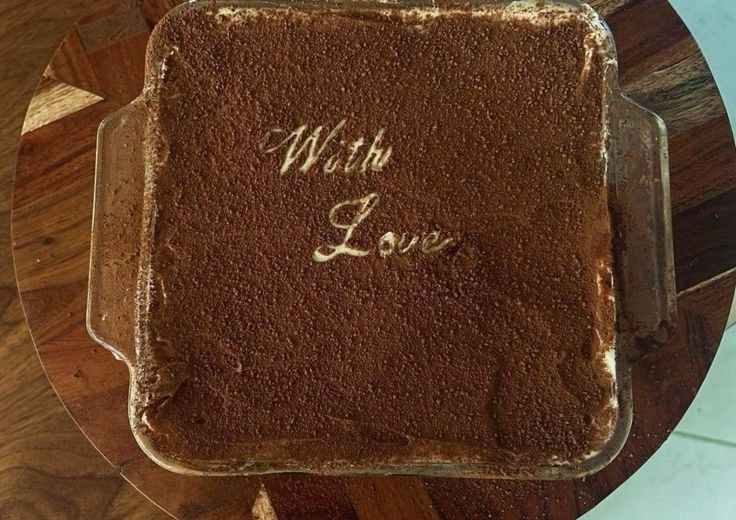 With
Love